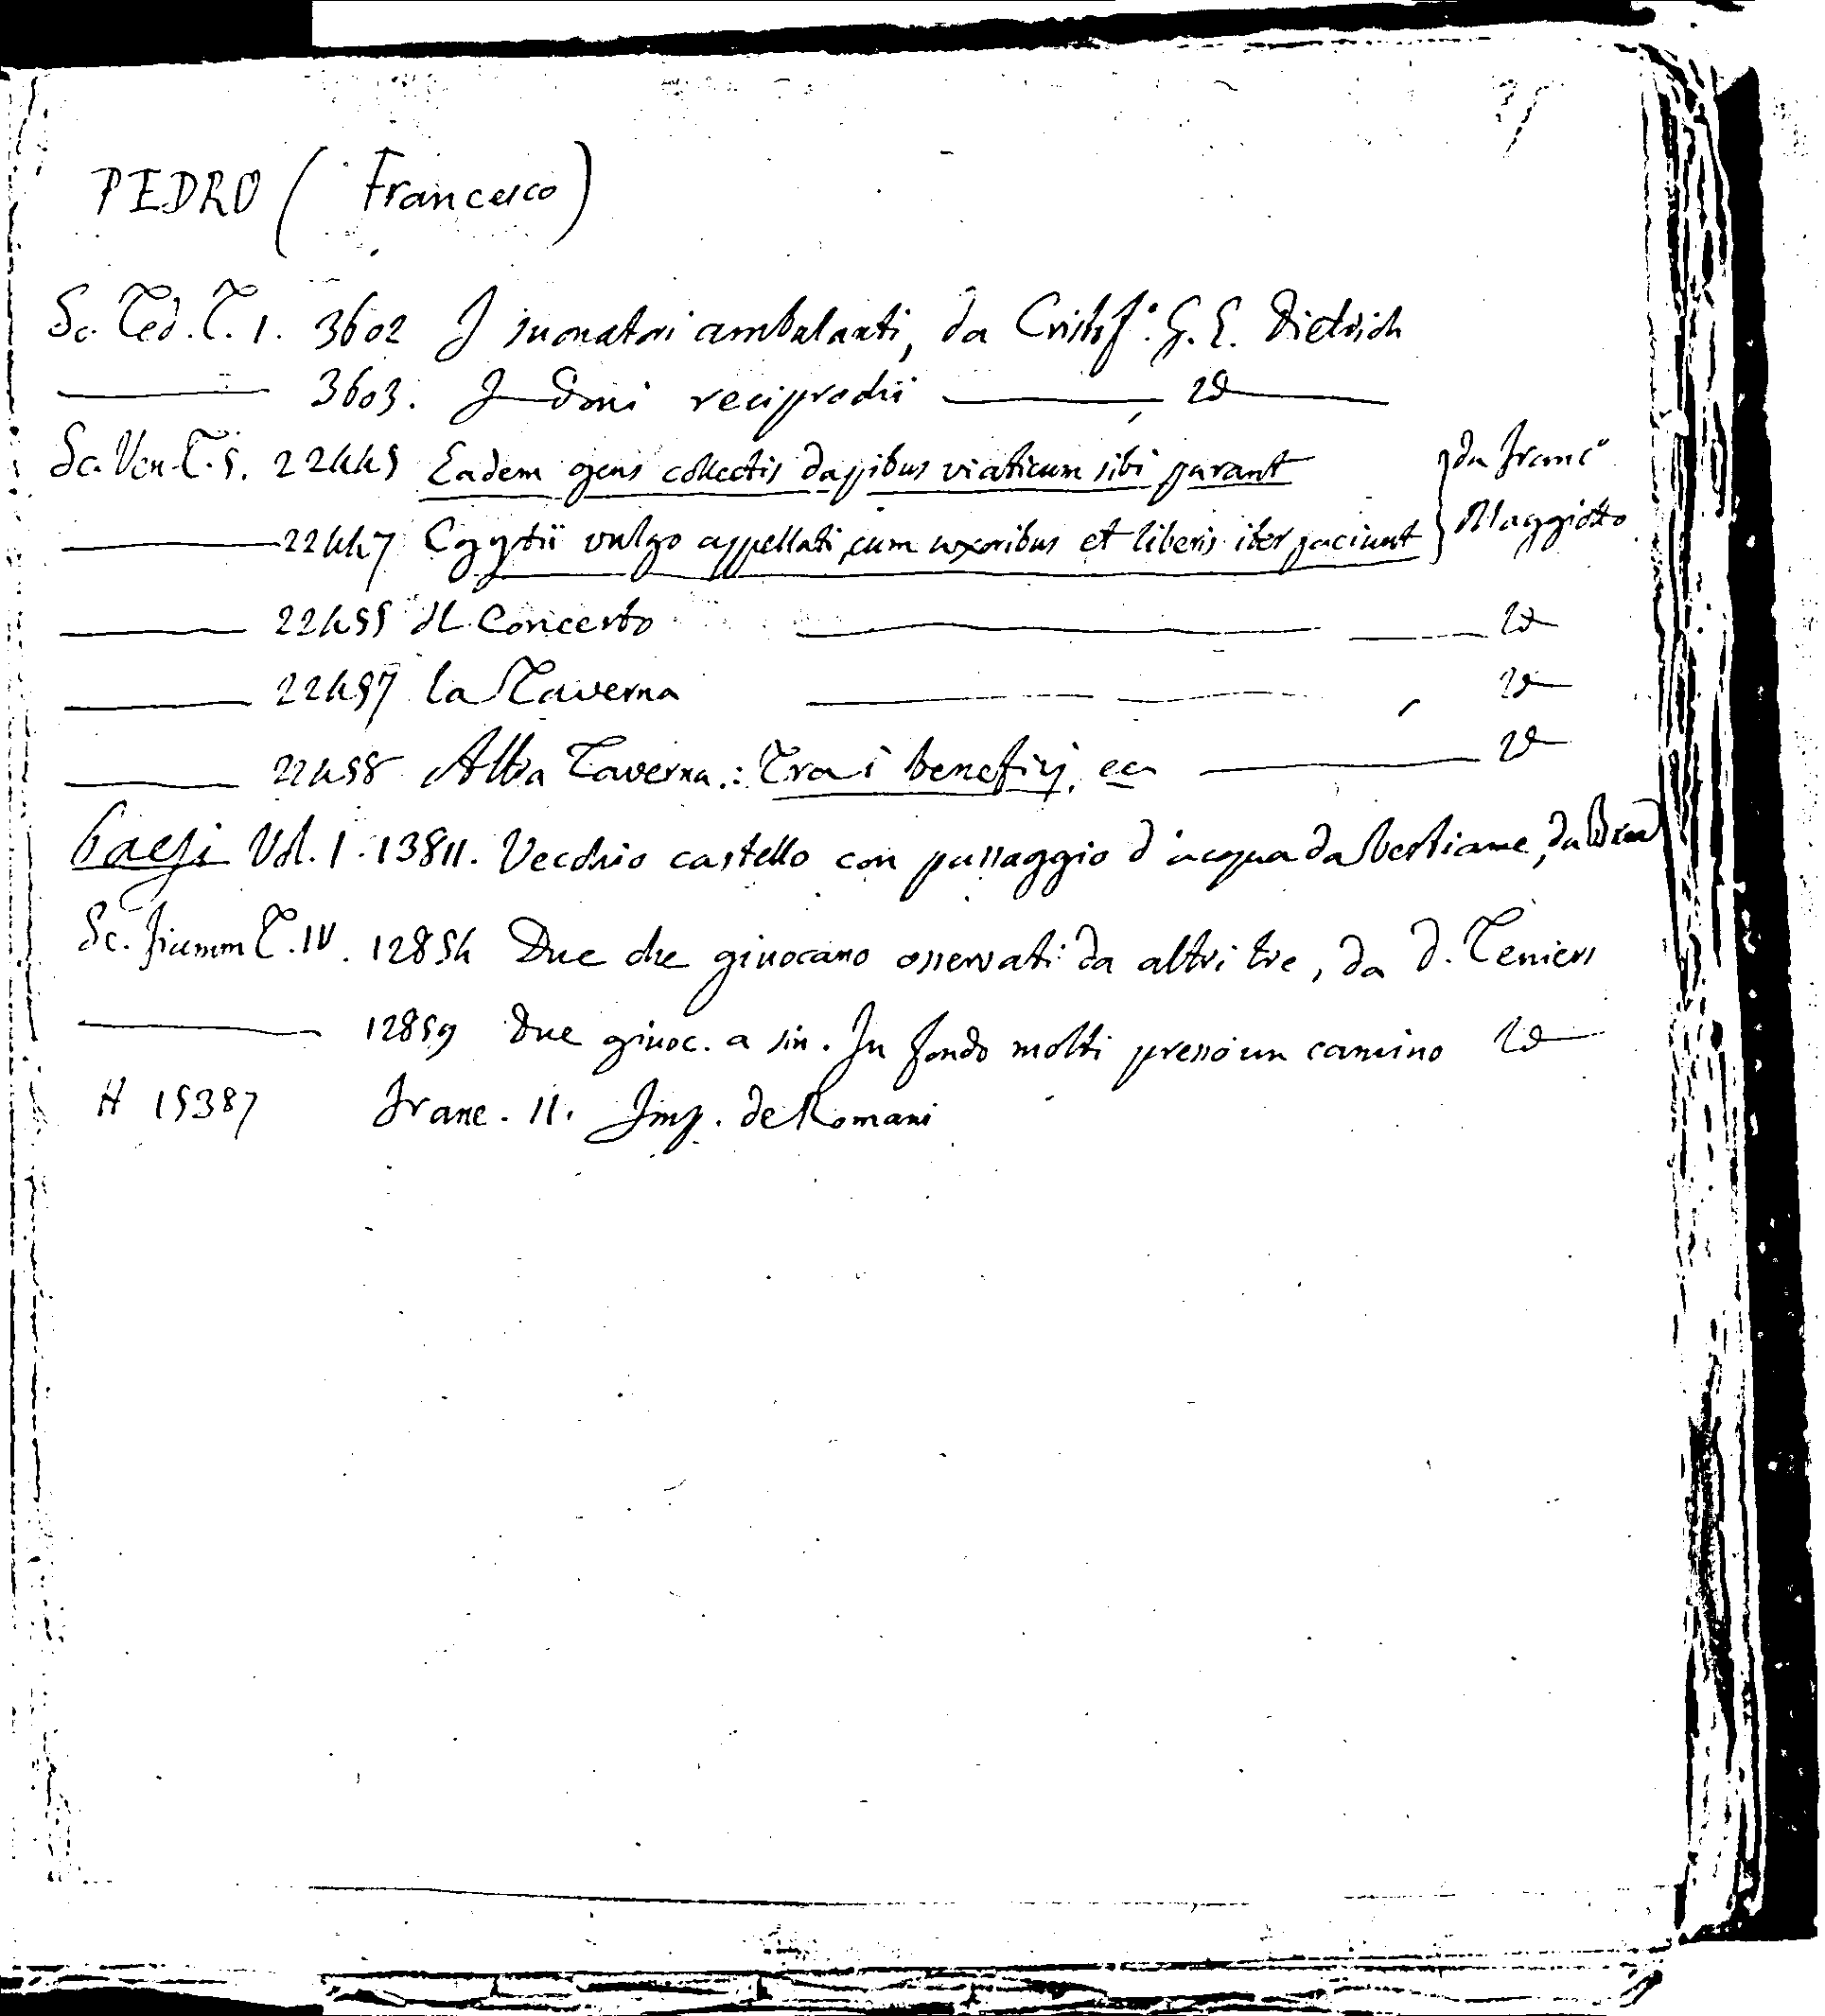 PEDRO (Francesco)
Sc. Ted. T. 1. 3602 I suonatori ambulanti, da Cristof.º G. E. Dietrich
——— 3603. I Doni reciprochi ——— id ———
Sc. Ven. T. 5. 22445 Eadem gens collectis dapibus viaticum sibi parant } da Franc.º
——— 22447 Egyptii vulgo appellati cum uxoribus et liberis iter faciunt } Maggiotto
——— 22455 Il Concerto ——— id
——— 22457 la Taverna ——— id
——— 22458 Altra Taverna: Tra i benefizj. ec. ——— id
Paesi Vol. 1. 13811. Vecchio castello con passaggio d'acqua da bestiame, da
Sc. fiamm T. IV. 12854 Due che giuocano osservati da altri tre, da D. Teniers
——— 12859 Due giuoc. a sin. In fondo molti presso un camino id
H 15387 Franc. II. Imp. de Romani